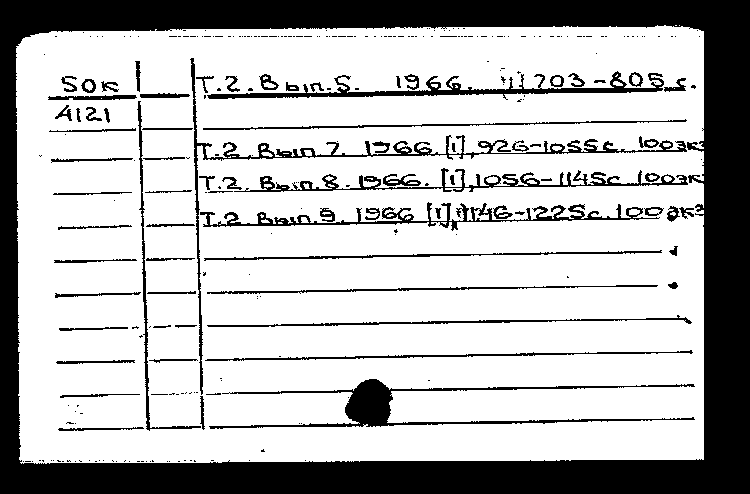 50к Т.2. Вып.5. 1966. [1] 703-805 с.
4121
Т.2. Вып.7. 1966. [1], 926-1055с. 100экз
Т.2. Вып.8. 1966. [1], 1056-1145с. 100экз
Т.2. Вып.9. 1966 [1], 1146-1225с. 100экз